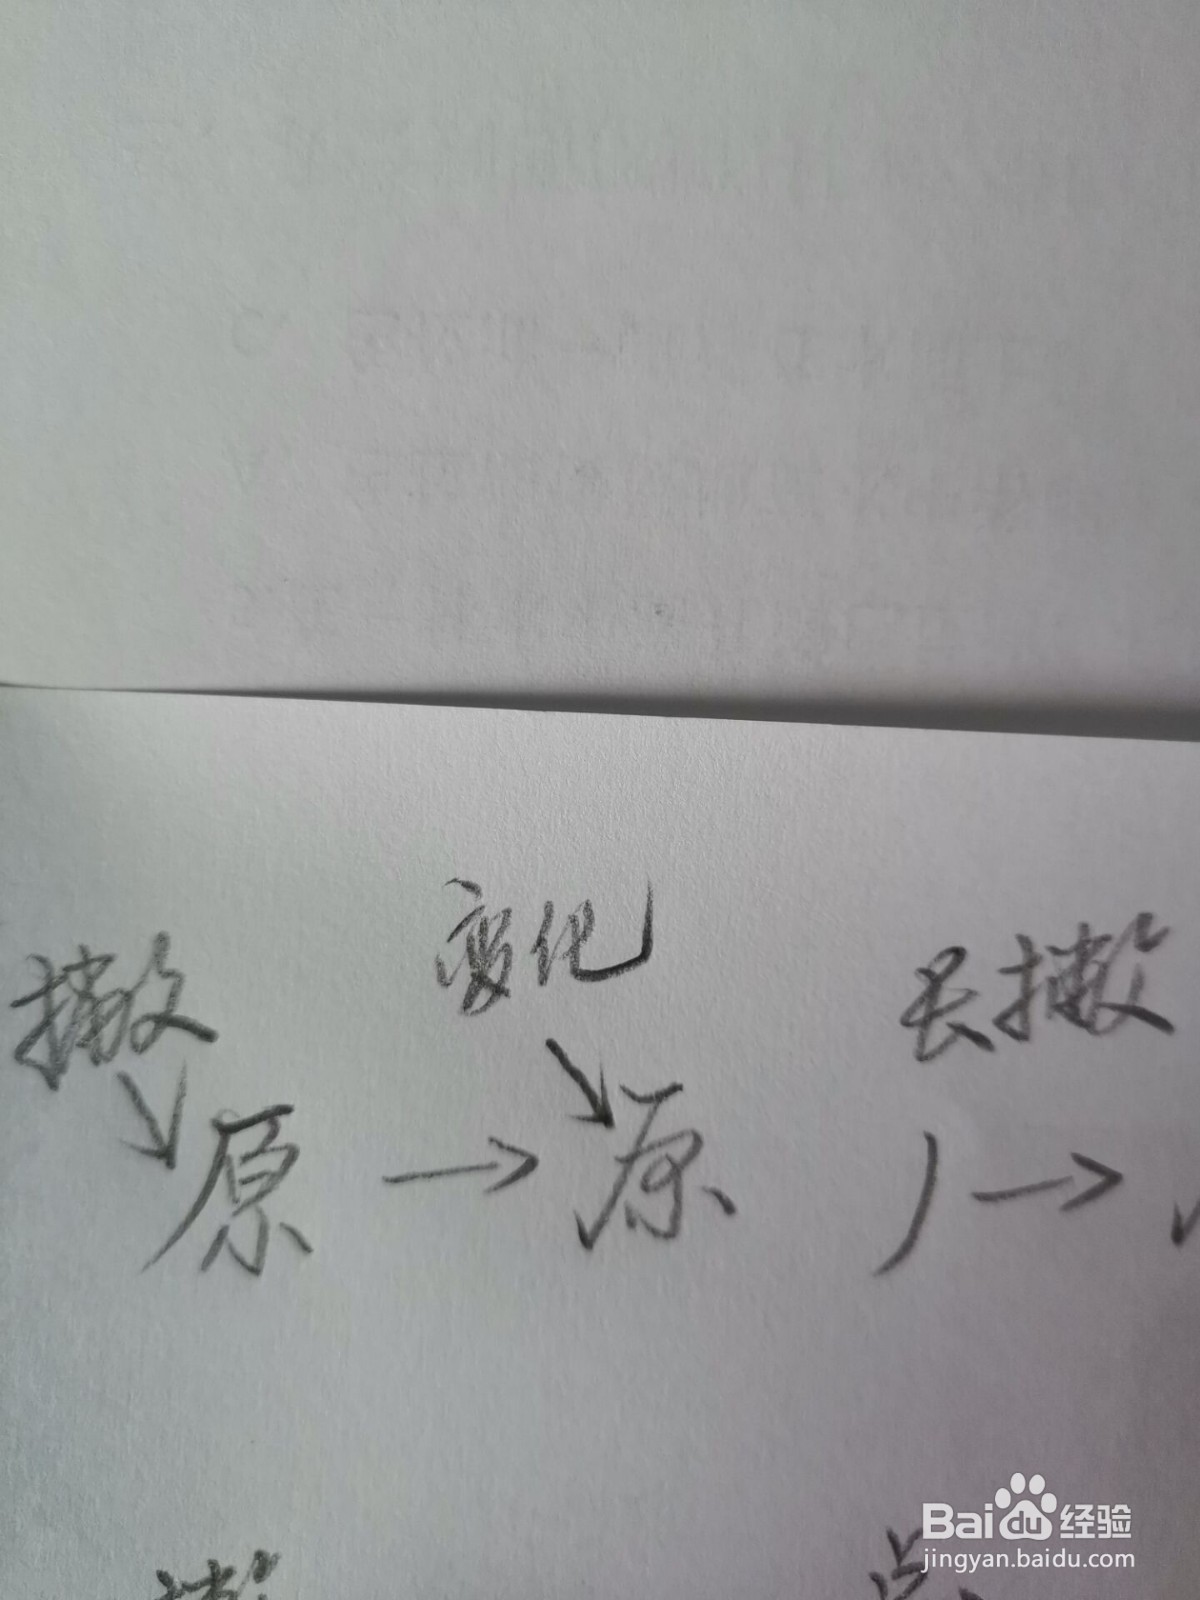 变化
撇 长撇
原 → 原 丿 →
撇 点
Baidu 经验
jingyan.baidu.com